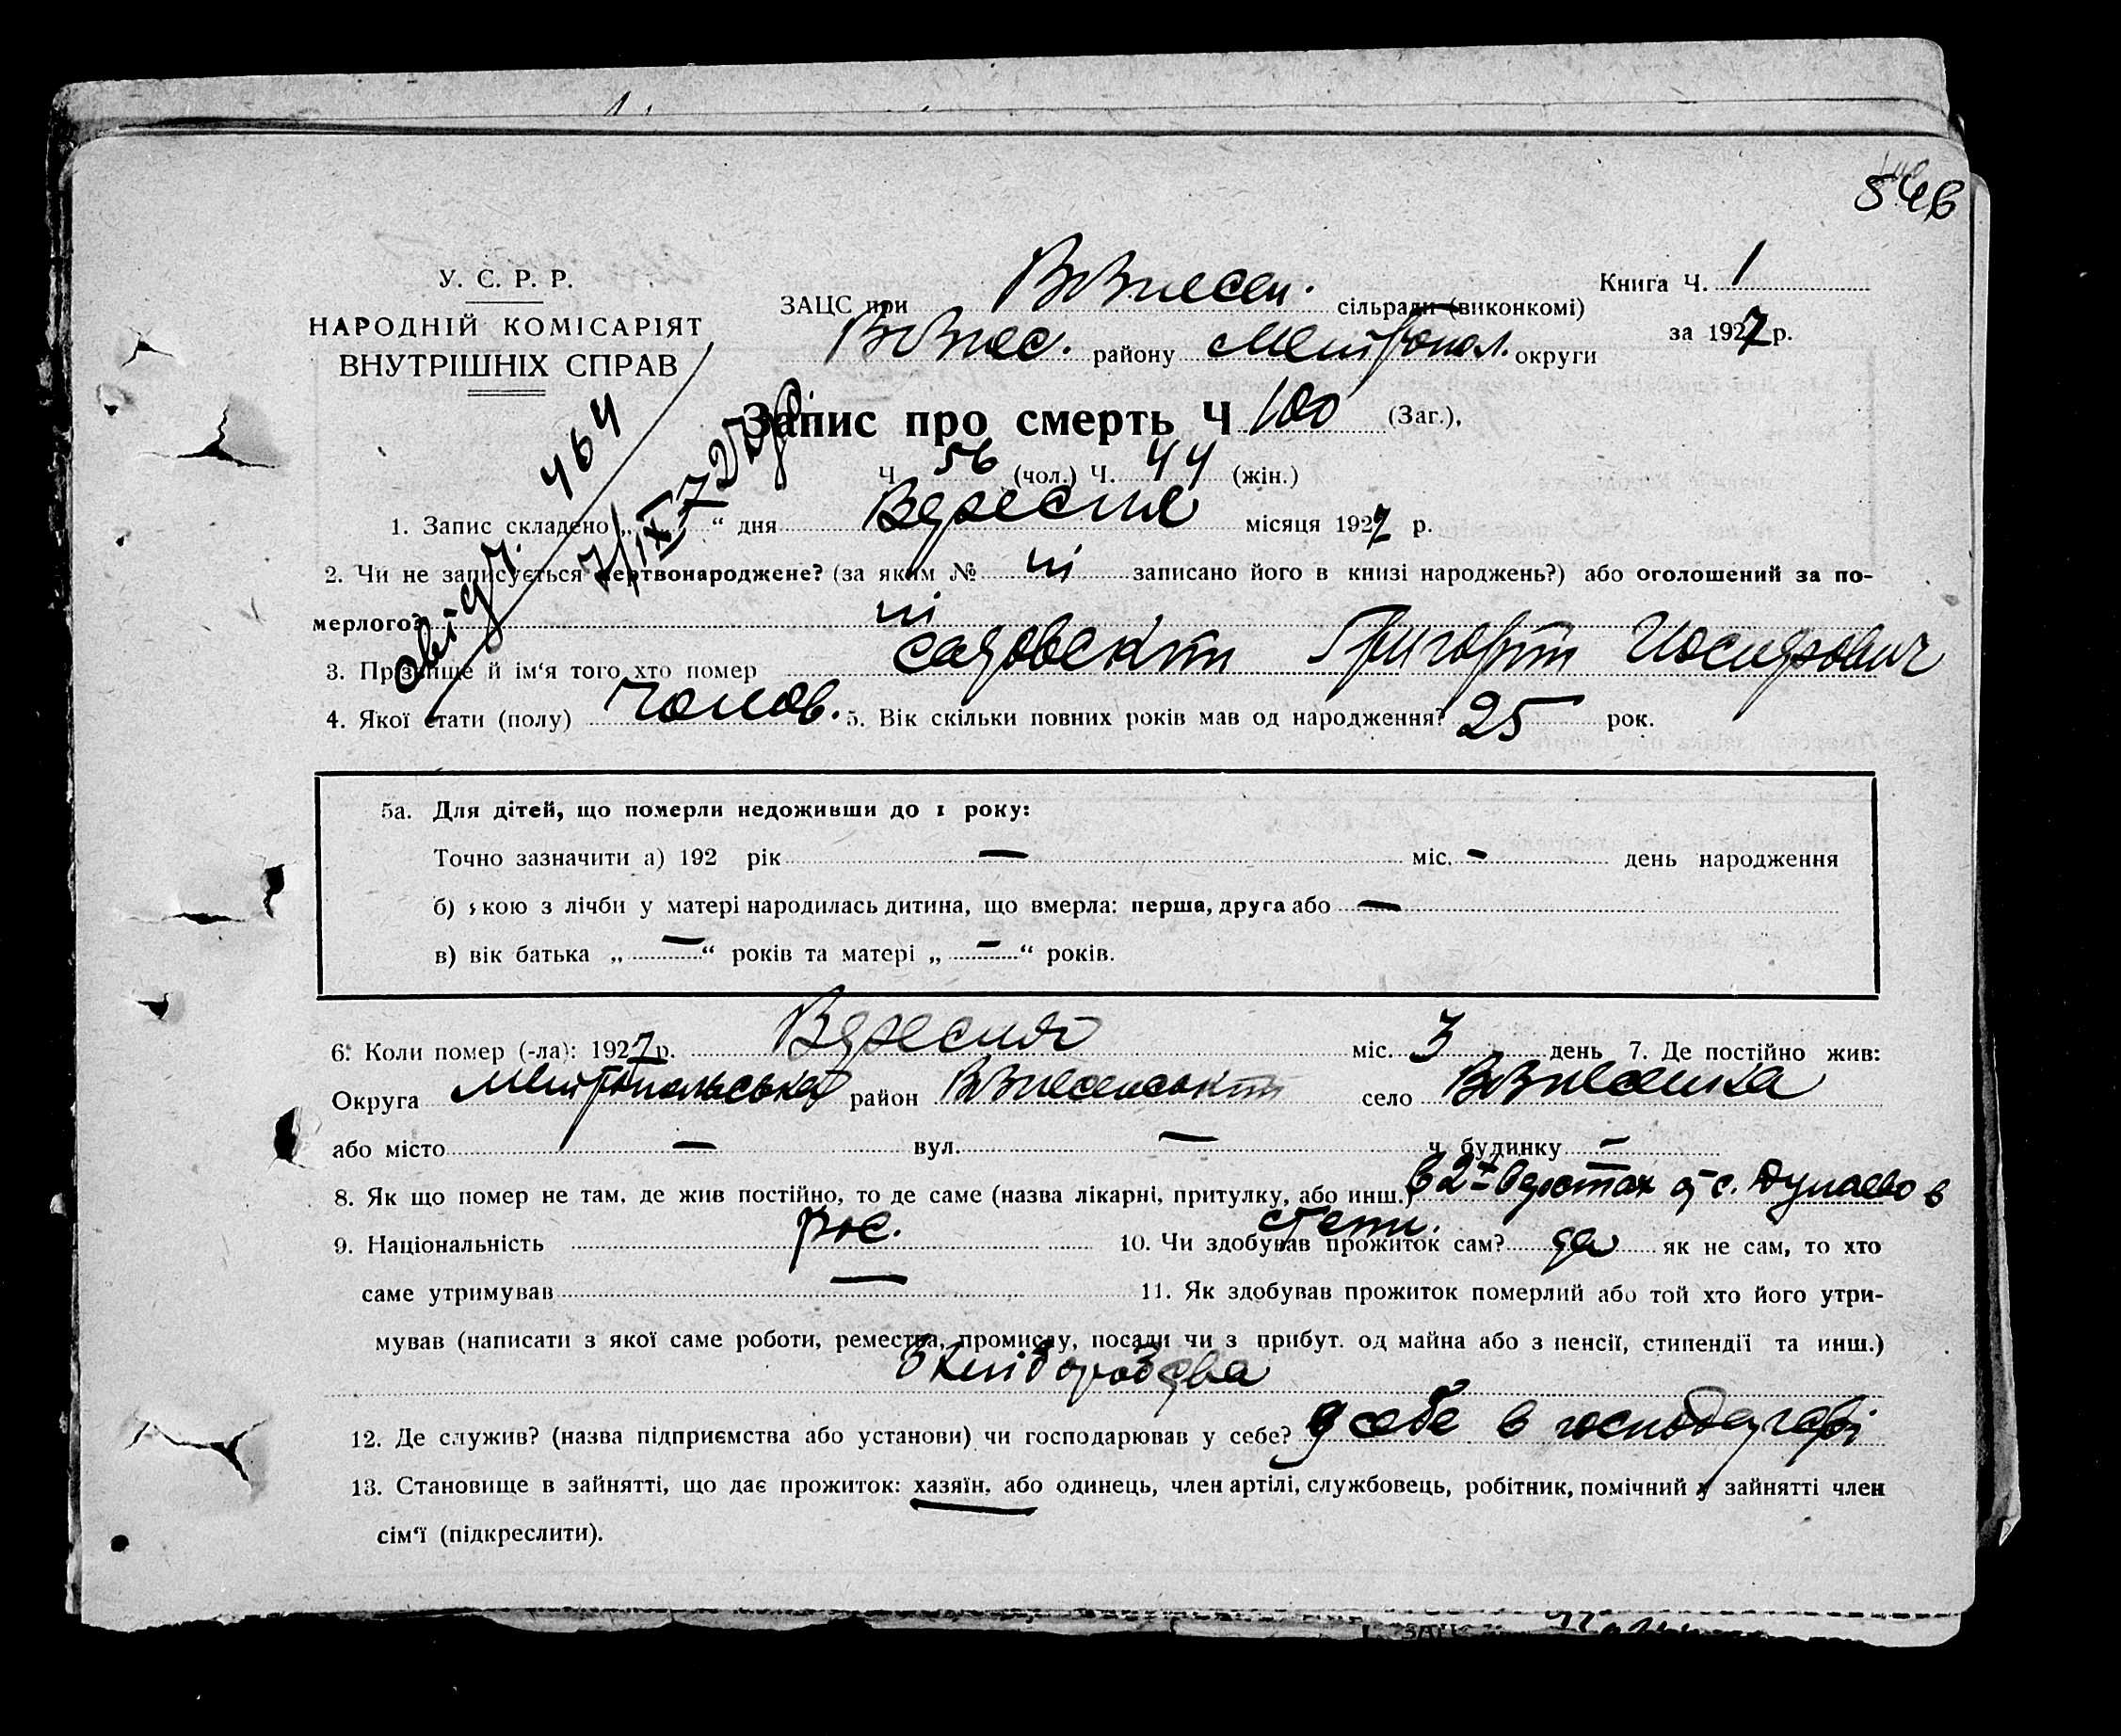 546
У. С. Р. Р.
НАРОДНІЙ КОМІСАРІЯТ
ВНУТРІШНІХ СПРАВ
ЗАЦС при Вознесен. сільради (виконкомі)
Вознес. району Мелітопол. округи
Книга Ч. 1
за 1927 р.
Запис про смерть Ч 100 (Заг.),
Ч 56 (чол.) Ч. 44 (жін.)
464
1. Запис складено „7“ дня Вересня місяця 1927 р.
2. Чи не записується мертвонароджене? (за яким № ні записано його в книзі народжень?) або оголошений за по-
мерлого? ні
3. Прізвище й ім‘я того хто помер Садовскій Григорій Иосифович
4. Якої стати (полу) чолов. 5. Вік скільки повних років мав од народження? 25 рок.
5а. Для дітей, що померли недоживши до 1 року:
Точно зазначити а) 192 рік — міс. - день народження
б) якою з лічби у матері народилась дитина, що вмерла: перша, друга або —
в) вік батька „—“ років та матері „—“ років.
6. Коли помер (-ла): 1927 р. Вересня міс. 3 день 7. Де постійно жив:
Округа Мелітопольська район Вознесенський село Вознесенка
або місто — вул. — ч. будинку —
8. Як що помер не там, де жив постійно, то де саме (назва лікарні, притулку, або инш.) в 2-х верстах от с. Дунаево в
степи.
9. Національність рос. 10. Чи здобував прожиток сам? да як не сам, то хто
саме утримував — 11. Як здобував прожиток померлий або той хто його утри-
мував (написати з якої саме роботи, ремества, промислу, посади чи з прибут. од майна або з пенсії, стипендії та инш.)
З хліборобства
12. Де служив? (назва підприємства або установи) чи господарював у себе? У себе в господарстві
13. Становище в зайнятті, що дає прожиток: хазяїн, або одинець, член артілі, службовець, робітник, помічний у зайнятті член
сім‘ї (підкреслити).